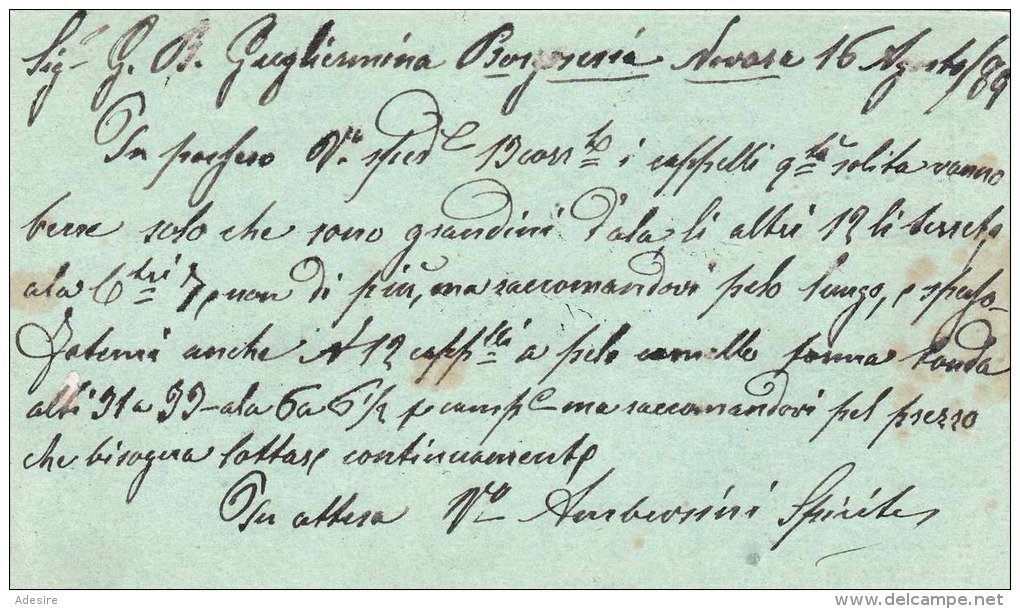 Sigr G. B. Gugliermina Borgosesia Novara 16 Agosto/99
In possesso Vra sped 13 corrte i cappelli qtà solita vanno
bene solo che sono grandini d'ala, li altri 12 li terrete
ala 6 7, e non di più, ma raccomandovi pelo lungo, e spesso
Fatemi anche N 12 cappelli a pelo camello forma tonda
alti 31 a 33 - ala 6 a 6 1/2 ma raccomandovi pel prezzo
che bisogna lottare continuamente
In attesa Vro Ambrosini Spirito
Adesire
delcampe.net